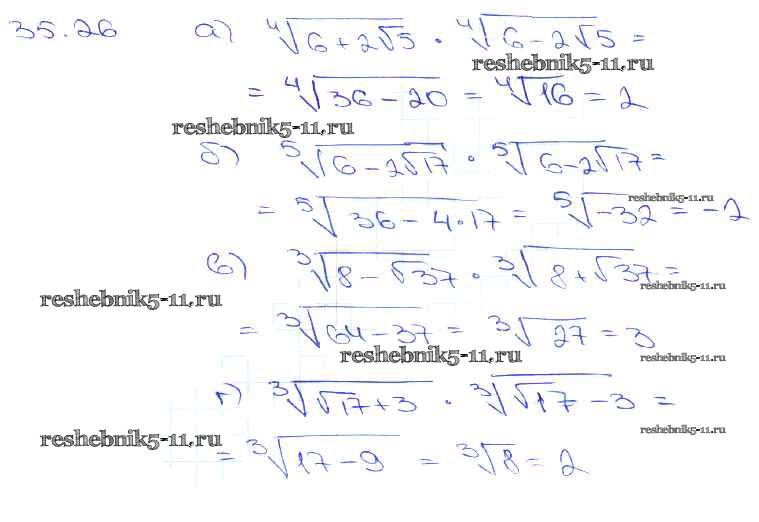 35.26 а) ⁴√(6+2√5) · ⁴√(6-2√5) =
reshebnik5-11.ru
= ⁴√(36-20) = ⁴√16 = 2
reshebnik5-11.ru
б) ⁵√(6-2√17) · ⁵√(6-2√17) =
reshebnik5-11.ru
= ⁵√(36-4·17) = ⁵√-32 = -2
в) ³√(8-√37) · ³√(8+√37) =
reshebnik5-11.ru
reshebnik5-11.ru
= ³√(64-37) = ³√27 = 3
reshebnik5-11.ru
reshebnik5-11.ru
г) ³√(√17+3) · ³√(√17-3) =
reshebnik5-11.ru
reshebnik5-11.ru
= ³√(17-9) = ³√8 = 2